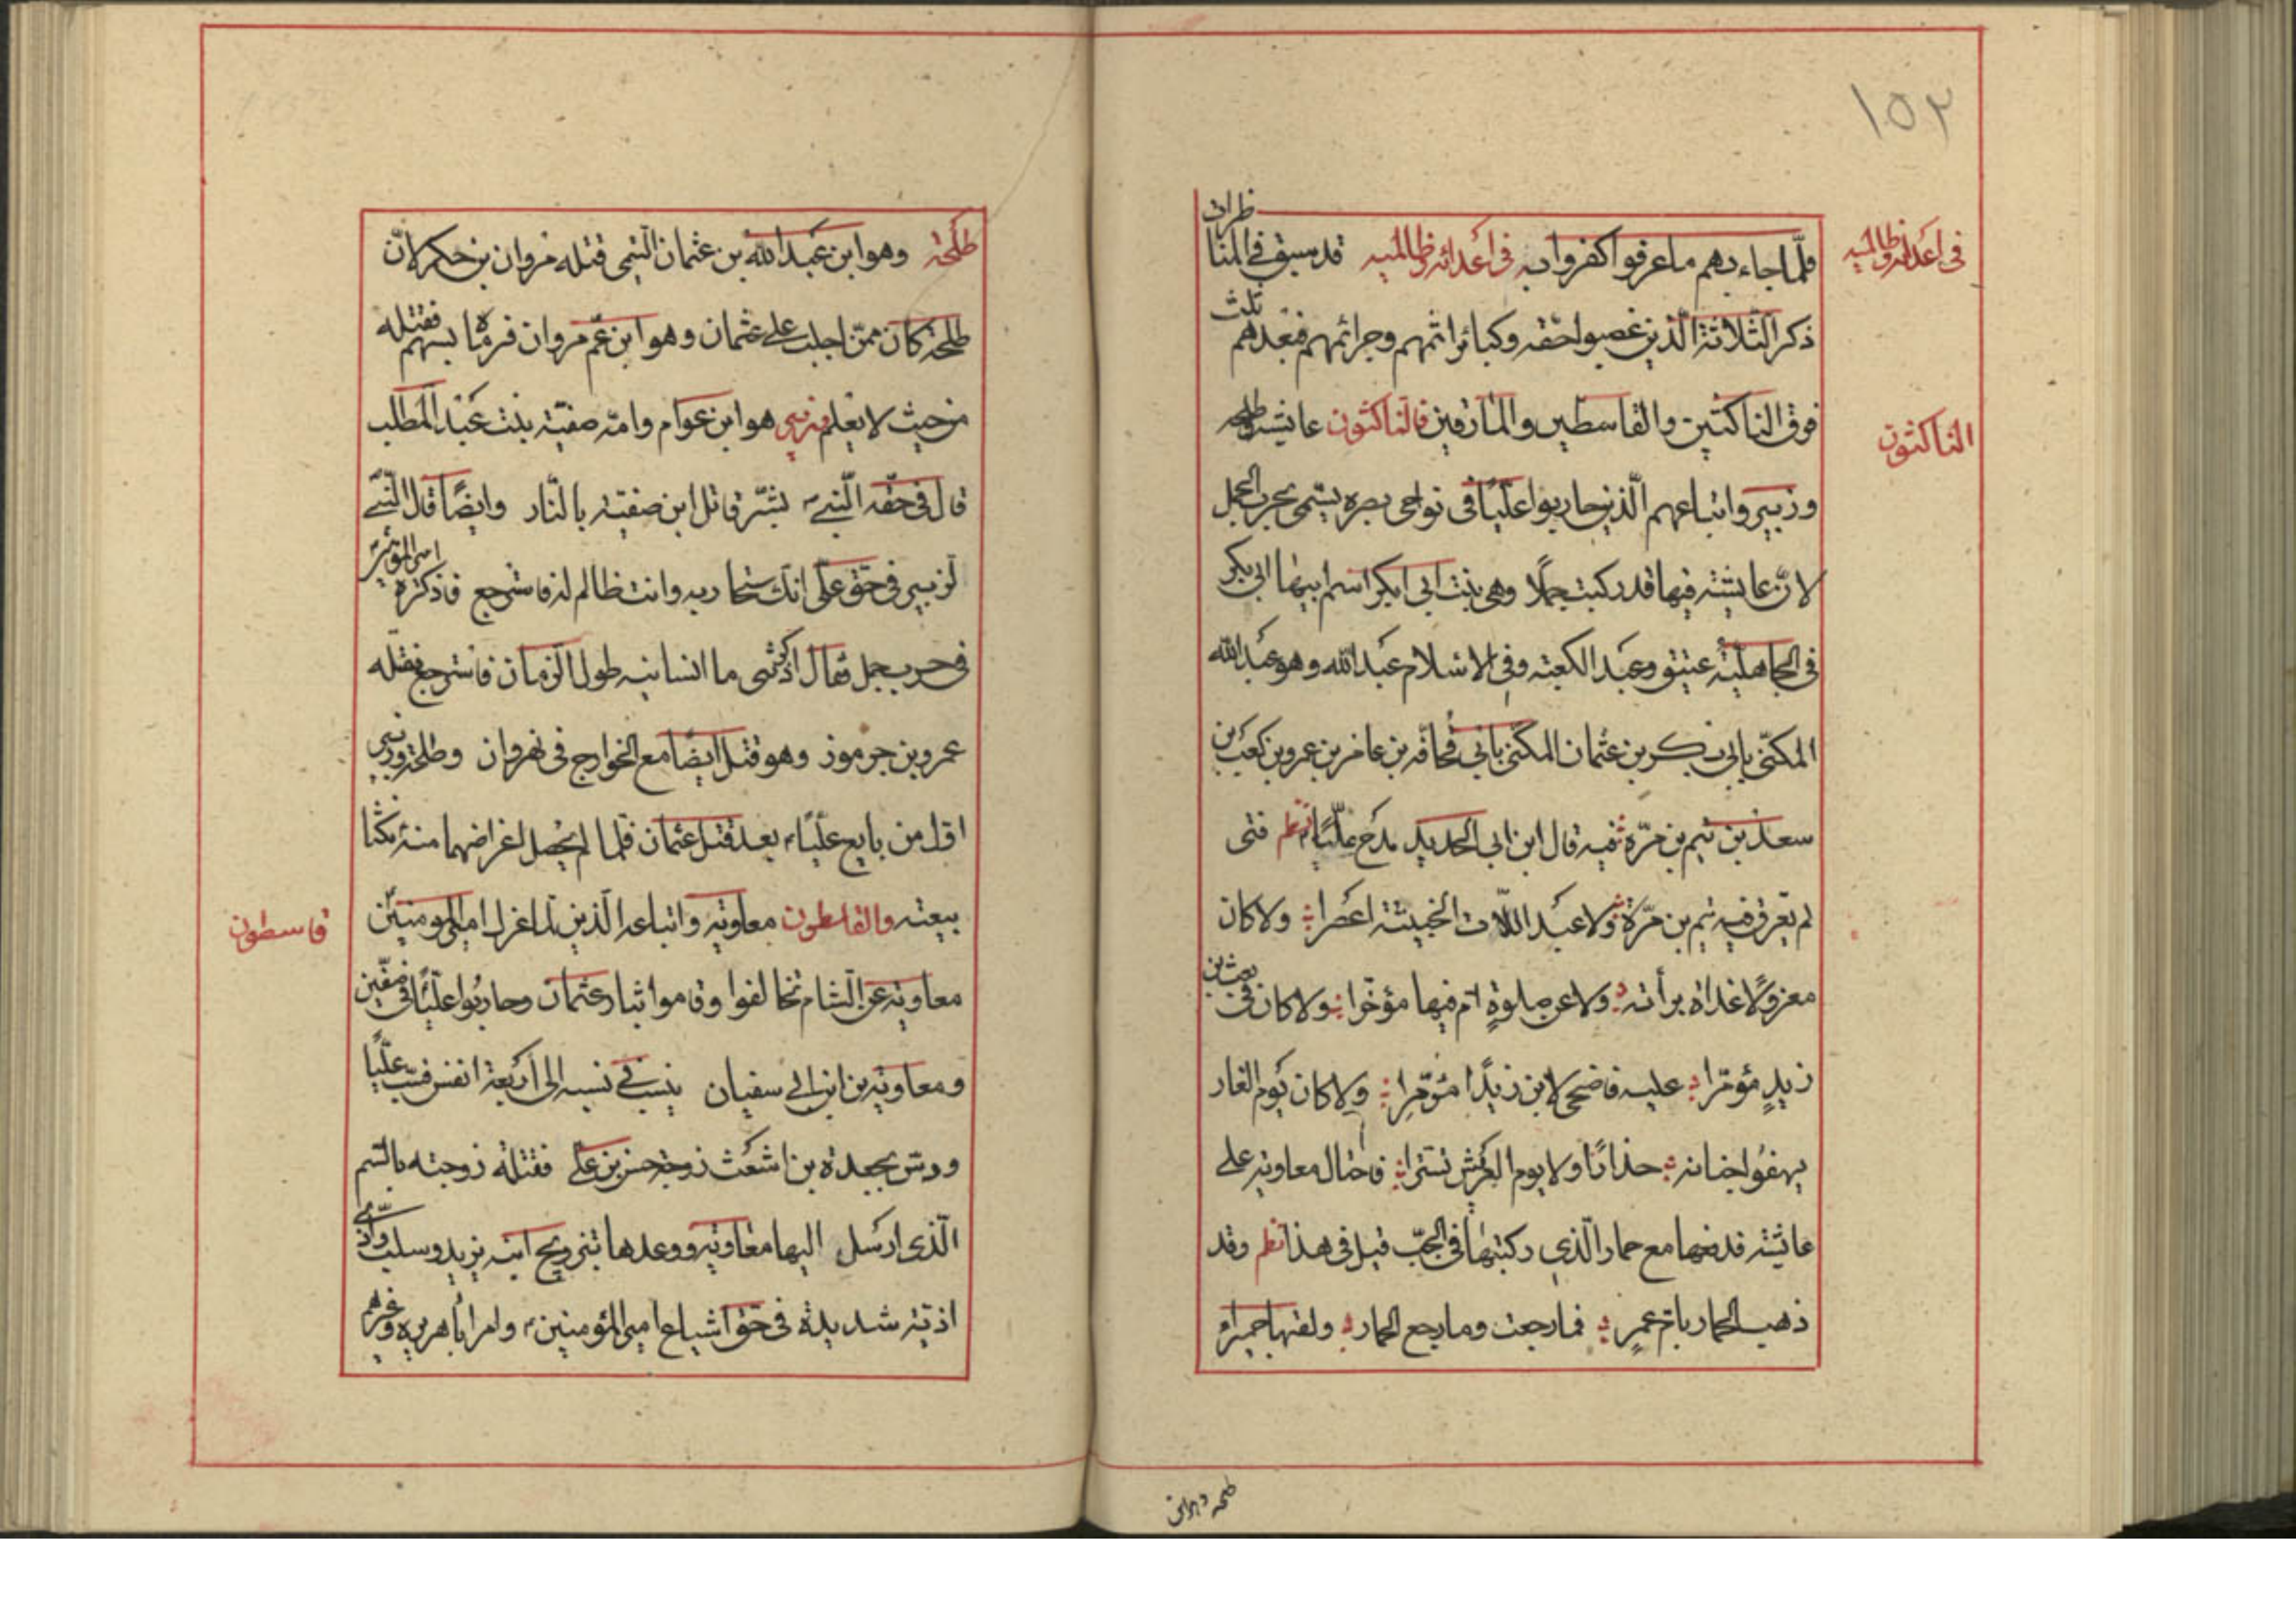 ١٥٢
فى اعدائه وظالميه
فلمّا جاءهم ما عرفوا كفروا به فى اعدائه وظالميه قد سبق فى المناظرات
ذكر الثّلاثة الّذين غصبوا حقّه وكبائر اثمهم وجرائمهم فبعدهم ثلث
فرق الناكثين والقاسطين والمارقين فالناكثون عايشه وطلحه
الناكثون
وزبير واتباعهم الّذين حاربوا عليّا فى نواحى بصره يسمّى بحرب الجمل
لانّ عايشه فيها قد ركبت جملًا وهى بنت ابى بكر اسم ابيها ابى بكر
فى الجاهليّة عتيق وعبد الكعبه وفى الاسلام عبد الله وهو عبد الله
المكنّى بابى بكر بن عثمان المكنّى بابى قحافه بن عامر بن عمرو بن كعب بن
سعد بن تيم بن مرّه قال ابن ابى الحديد بمدح عليّا نظم فتى
لم يعرق فيه تيم بن مرّة ولا عبد اللّات الخبيثة اعصرا ولا كان
معزولًا غداة برأته ولا عن صلوةٍ امّ فيها مؤخّرا ولا كان فى بعث بن
زيدٍ مؤمّرا عليه فاضحى لابن زيدًا مؤمّرا ولا كان يوم الغار
يهفو اجنانه حذارًا ولا يوم العريش تستّرا فاحتال معاويه على
عايشه فدفنها مع حمار الّذى ركبتها فى الجبّ قيل فى هذا نظم وقد
ذهب الحمار بامّ عمرٍ فما رجعت وما رجع الحمار ولقبها حميرا و
طلحه وهو ابن
طلحة وهو ابن عبد الله بن عثمان التيمى قتله مروان بن حكم لانّ
طلحة كان ممّن اجلب على عثمان وهو ابن عم مروان فرماه بسهم فقتله
من حيث لا يعلم زبير هو ابن عوام وامّه صفيّه بنت عبد المطلب
قال فى حقّه النّبى بشّر قاتل ابن صفيّه بالنّار وايضًا قال النّبى
لزبير فى حق علىّ انك ستحاربه وانت ظالم له فاسترجع فذكره امير المؤمنين
فى حرب جمل فقال اذكرتنى ما انسانيه طول الزمان فاسترجع فقتله
عمرو بن جرموز وهو قتل ايضًا مع الخوارج فى نهروان وطلحة وزبير
اوّل من بايع عليّا بعد قتل عثمان فلما لم يحصل اغراضهما منه نكثا
بيعته والقاسطون معاويه واتباعه الّذين لما عزل امير المومنين
قاسطون
معاويه عن الشام تخالفوا وقاموا بثار عثمان وحاربوا عليّا فى صفّين
ومعاويه بن ابى سفيان ينسب فى نسبه الى اربعة انفس فسب عليّا
ودسّ بجعدة بن اشعث زوجة حسن بن على فقتلته زوجته بالسّم
الّذى ارسل اليها معاويه ووعدها بتزويج ابنه يزيد وسلب واذى
اذيّة شديدة فى حق اشياع امير المؤمنين وامر اباهريره وغيرهم